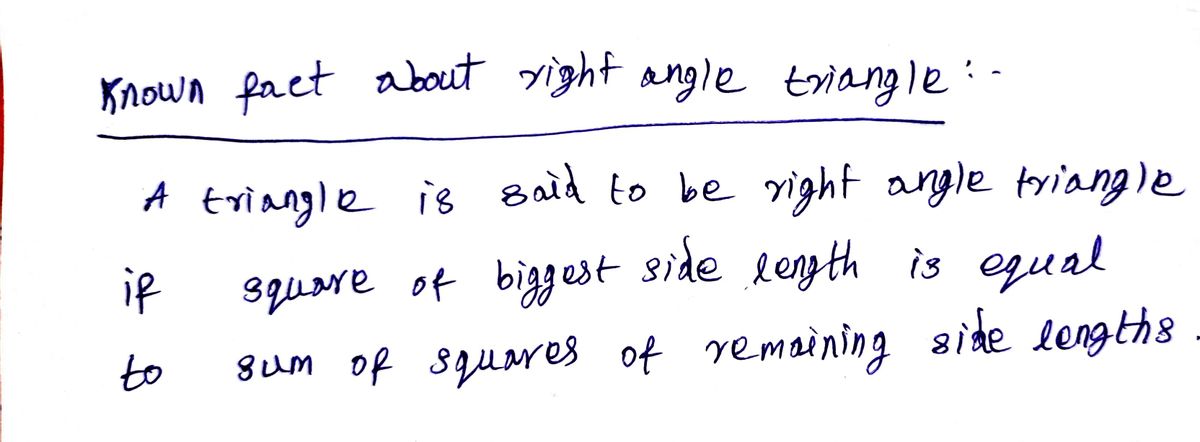 Known fact about right angle triangle :-
A triangle is said to be right angle triangle
if square of biggest side length is equal
to sum of squares of remaining side lengths.